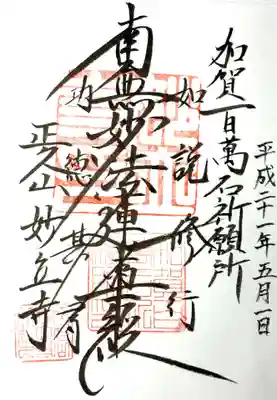 平成二十一年五月一日
加賀百萬石祈願所
如説修行
南無妙法蓮華経
功徳甚有
正久山妙立寺